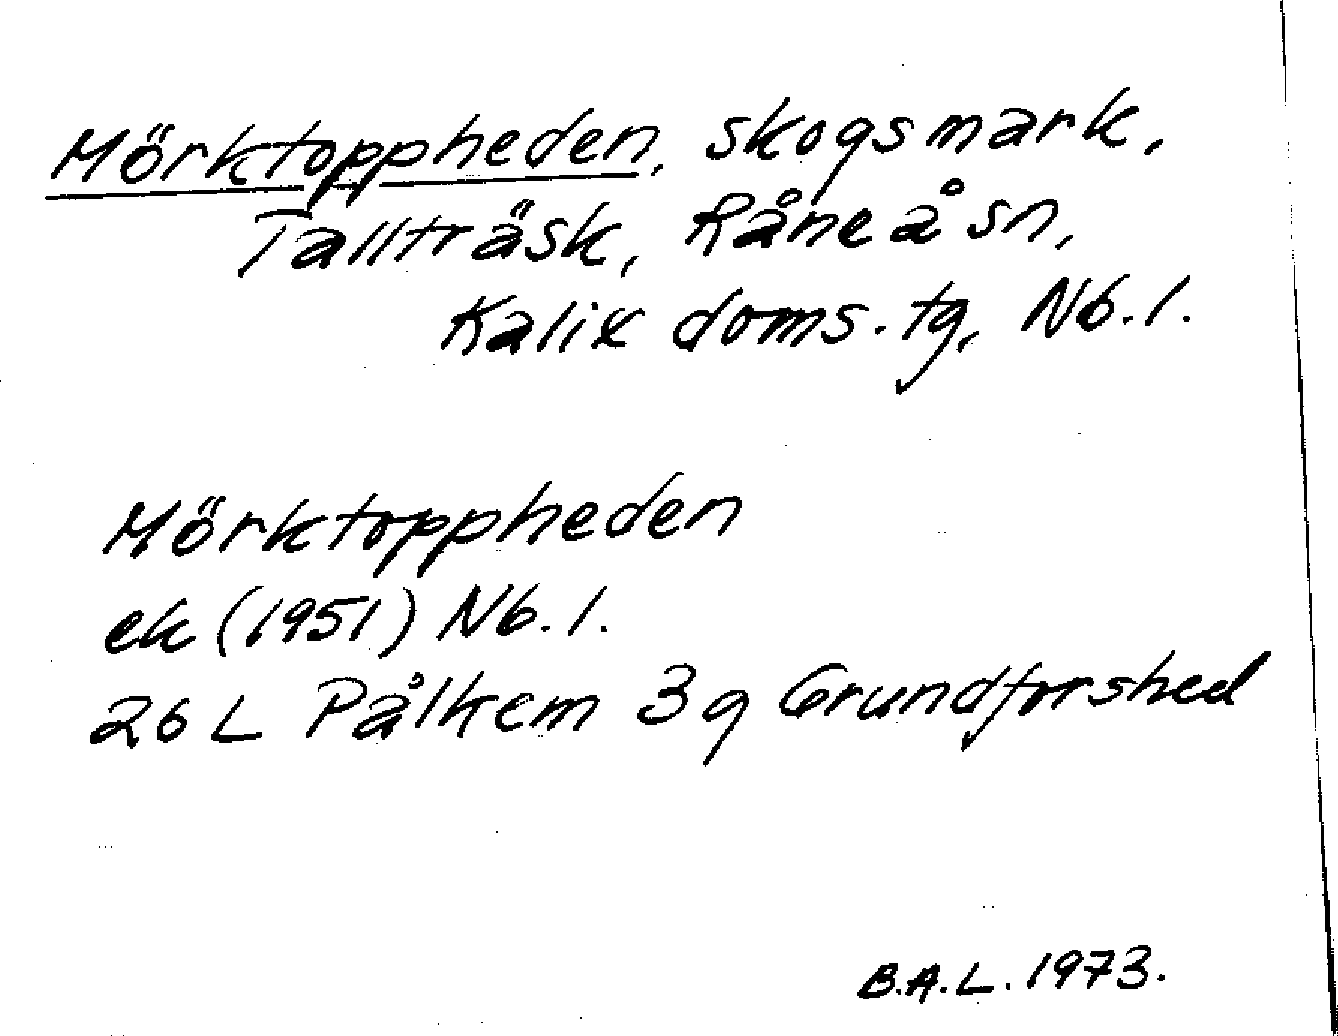 Mörktoppheden, skogsmark,
Tallträsk, Råneå sn,
Kalix doms. tg, Nb. l.
Mörktoppheden
ek (1951) Nb. l.
26 L Pålkem 3 g Grundforshed
B.A.L. 1973.